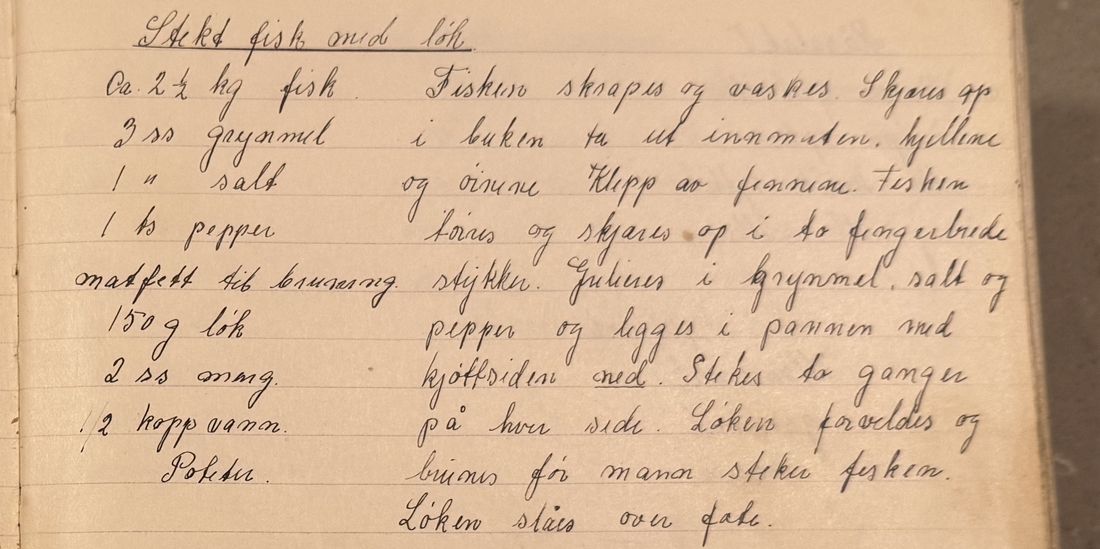 Stekt fisk med løk.
Ca. 2 ½ kg fisk.
3 ss grynmel
1 " salt
1 ts pepper
matfett til bruning.
150 g løk
2 ss marg.
1/2 kopp vann.
Poteter.
Fisken skrapes og vaskes. Skjæres op
i buken ta ut innmaten, hjellene
og øinene Klipp av finnene. Fisken
tørres og skjæres op i to fingerbrede
stykker. Gulieres i grynmel, salt og
pepper og legges i pannen med
kjøttsiden ned. Stekes to ganger
på hver side. Løken forveldes og
brunes før mann steker fisken.
Løken slåes over fate.